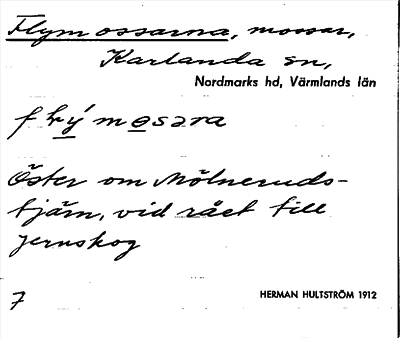 Flymossarna, mossar,
Karlanda sn,
Nordmarks hd, Värmlands län
flýmosara
Öster om Mölneruds-
tjärn, vid rået till
Jernskog
7
HERMAN HULTSTRÖM 1912